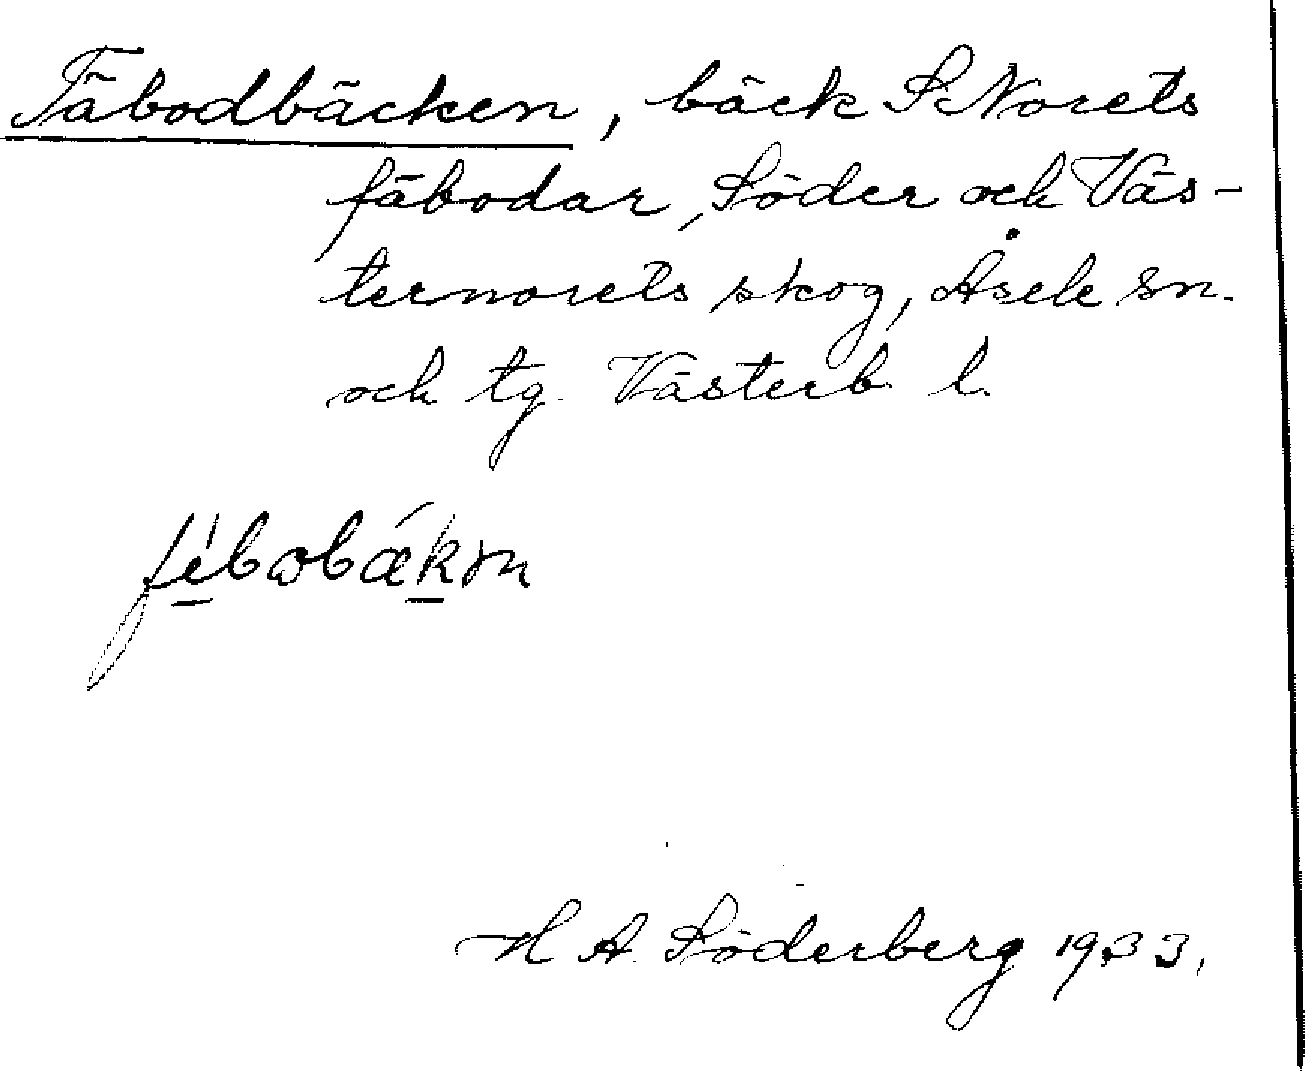 Fäbodbäcken, bäck S Norets
fäbodar, Söder och Väs-
ternorets skog, Åsele sn.
och tg. Västerb. l.
H A. Söderberg 1933.